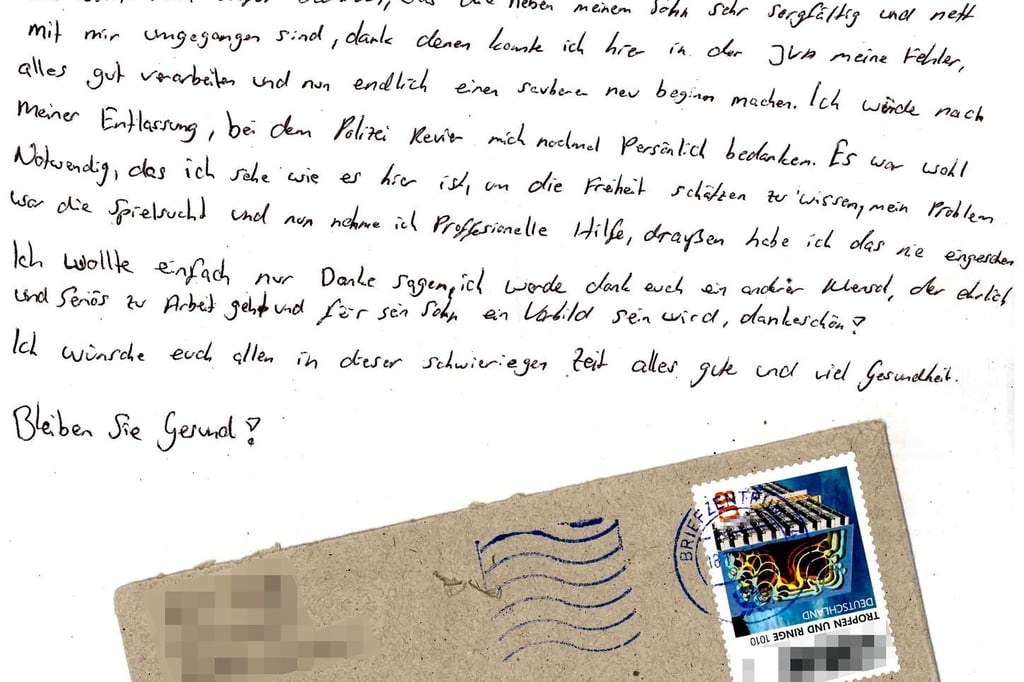 neben meinem Sohn sehr sorgfältig und nett
mit mir umgegangen sind, dank denen konnte ich hier in der JVA meine Fehler,
alles gut verarbeiten und nun endlich einen sauberen neu beginn machen. Ich würde nach
meiner Entlassung, bei dem Polizei Revier mich nochmal Persönlich bedanken. Es war wohl
Notwendig, das ich sehe wie es hier ist, um die Freiheit schätzen zu wissen, mein Problem
war die Spielsucht und nun nehme ich Proffesionelle Hilfe, draußen habe ich das nie eingesehen
Ich wollte einfach nur Danke sagen, ich werde dank euch ein anderer Mensch, der ehrlich
und Seriös zu Arbeit geht und für sein Sohn ein Vorbild sein wird, dankeschön!
Ich wünsche euch allen in dieser schwieriegen Zeit alles gute und viel Gesundheit.
Bleiben Sie Gesund!
BRIEFZENTRUM
DEUTSCHLAND
TROPFEN UND RINGE 1010